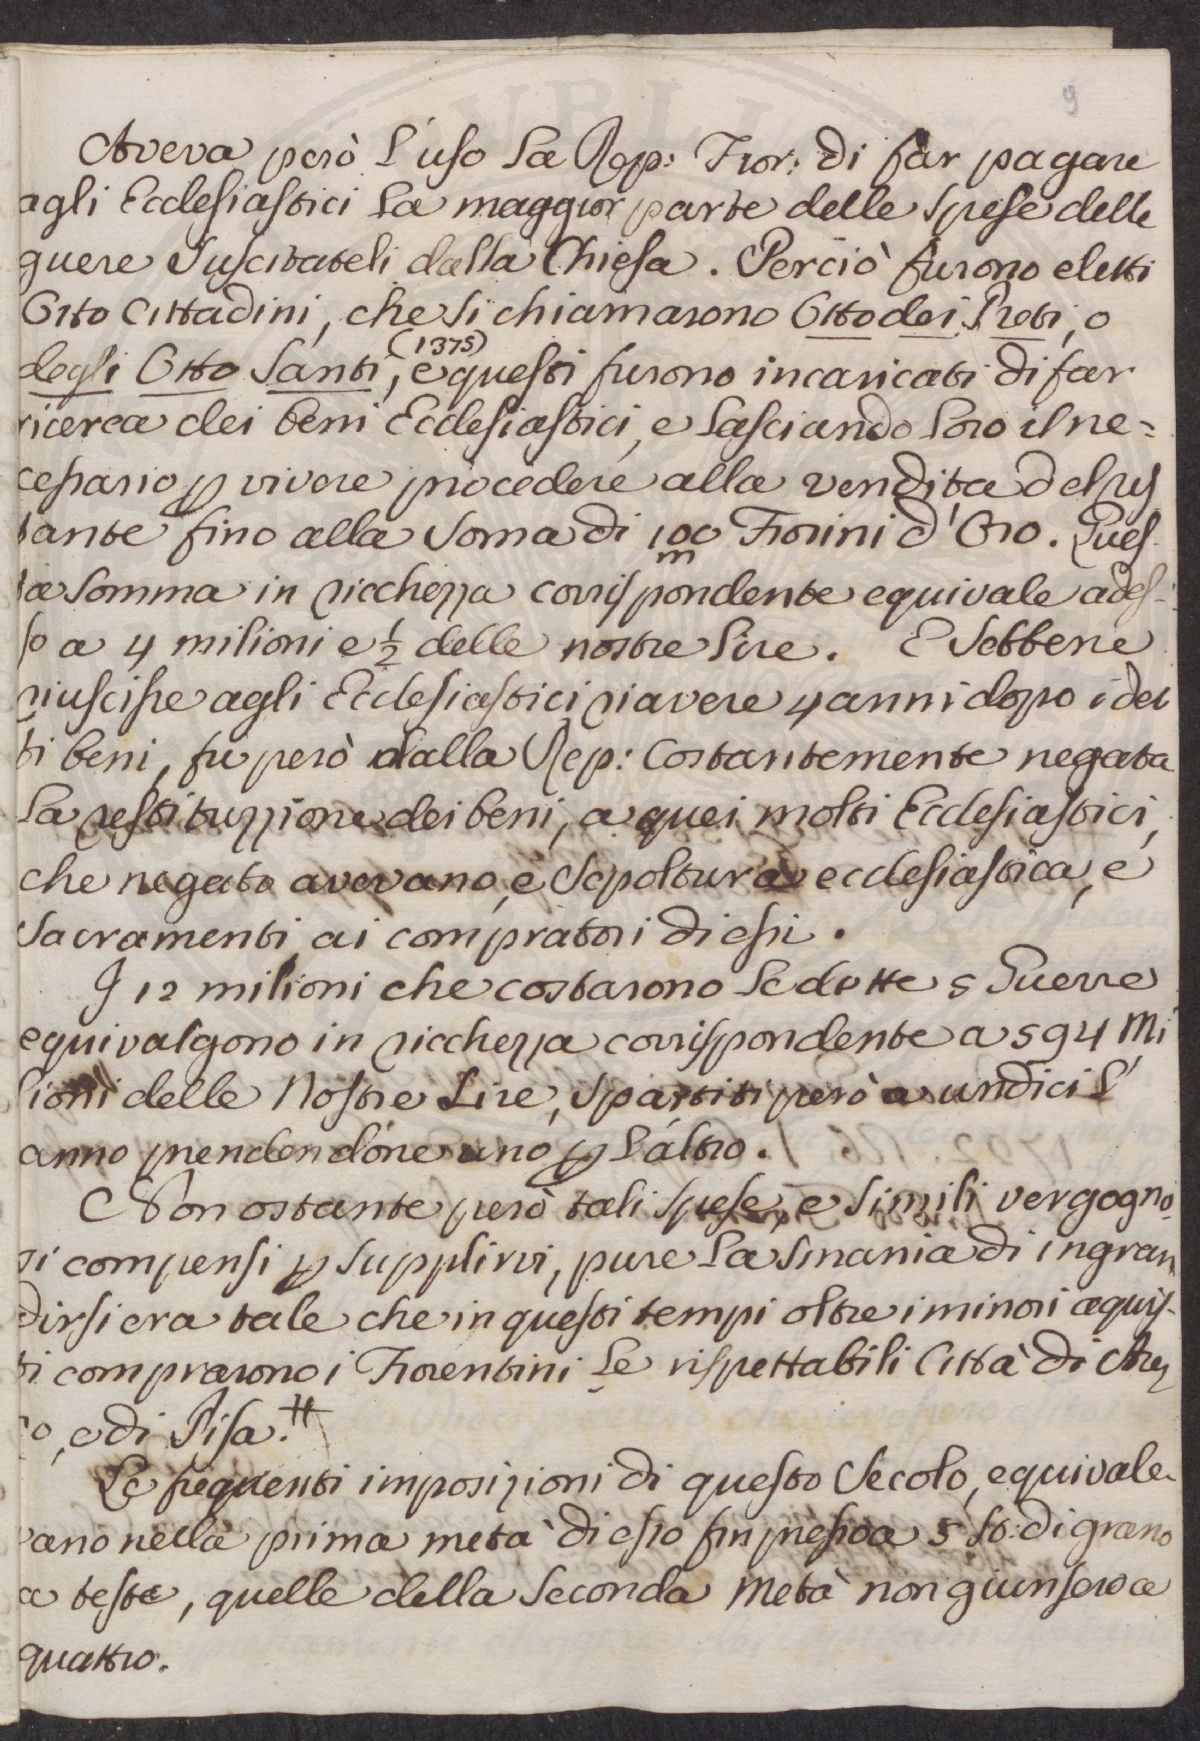 9
Aveva però l'uso la Rep: Fior: di far pagare
agli Ecclesiastici la maggior parte delle spese delle
guere suscitateli dalla Chiesa. Perciò furono eletti
Otto Cittadini, che si chiamarono Otto dei Preti, o
(1375)
degli Otto Santi, e questi furono incaricati di far
ricerca dei beni Ecclesiastici, e lasciando loro il ne=
cessario p vivere procedere alla vendita del res
tante fino alla soma di 100 Fiorini d'Oro. Ques-
m
ta somma in ricchezza corrispondente equivale ades-
so a 4 milioni e 1/2 delle nostre lire. E sebbene
riuscisse agli Ecclesiastici riavere 4 anni dopo i det
ti beni, fu però dalla Rep: costantemente negata
la restituzzione dei beni, a quei molti Ecclesiastici,
che negato avevano, e sepoltura ecclesiastica, e
sacramenti ai compratori di essi.
I 12 milioni che costarono le dette 5 Guerre
equivalgono in ricchezza corrispondente a 594 Mi
lioni delle Nostre Lire, spartiti però a undici l'
anno prendendone uno p l'altro.
Non ostante però tali spese, e simili vergogno
si compensi p supplirvi, pure la smania di ingran
dirsi era tale che in questi tempi oltre i minori aquis-
ti comprarono i Fiorentini le rispettabili Città di Arez
zo, e di Pisa.#
Le frequenti imposizioni di questo Secolo, equivale-
vano nella prima metà di esso fin presso a 5 st: di grano
a testa, quelle della seconda metà non giunsero a
quattro.